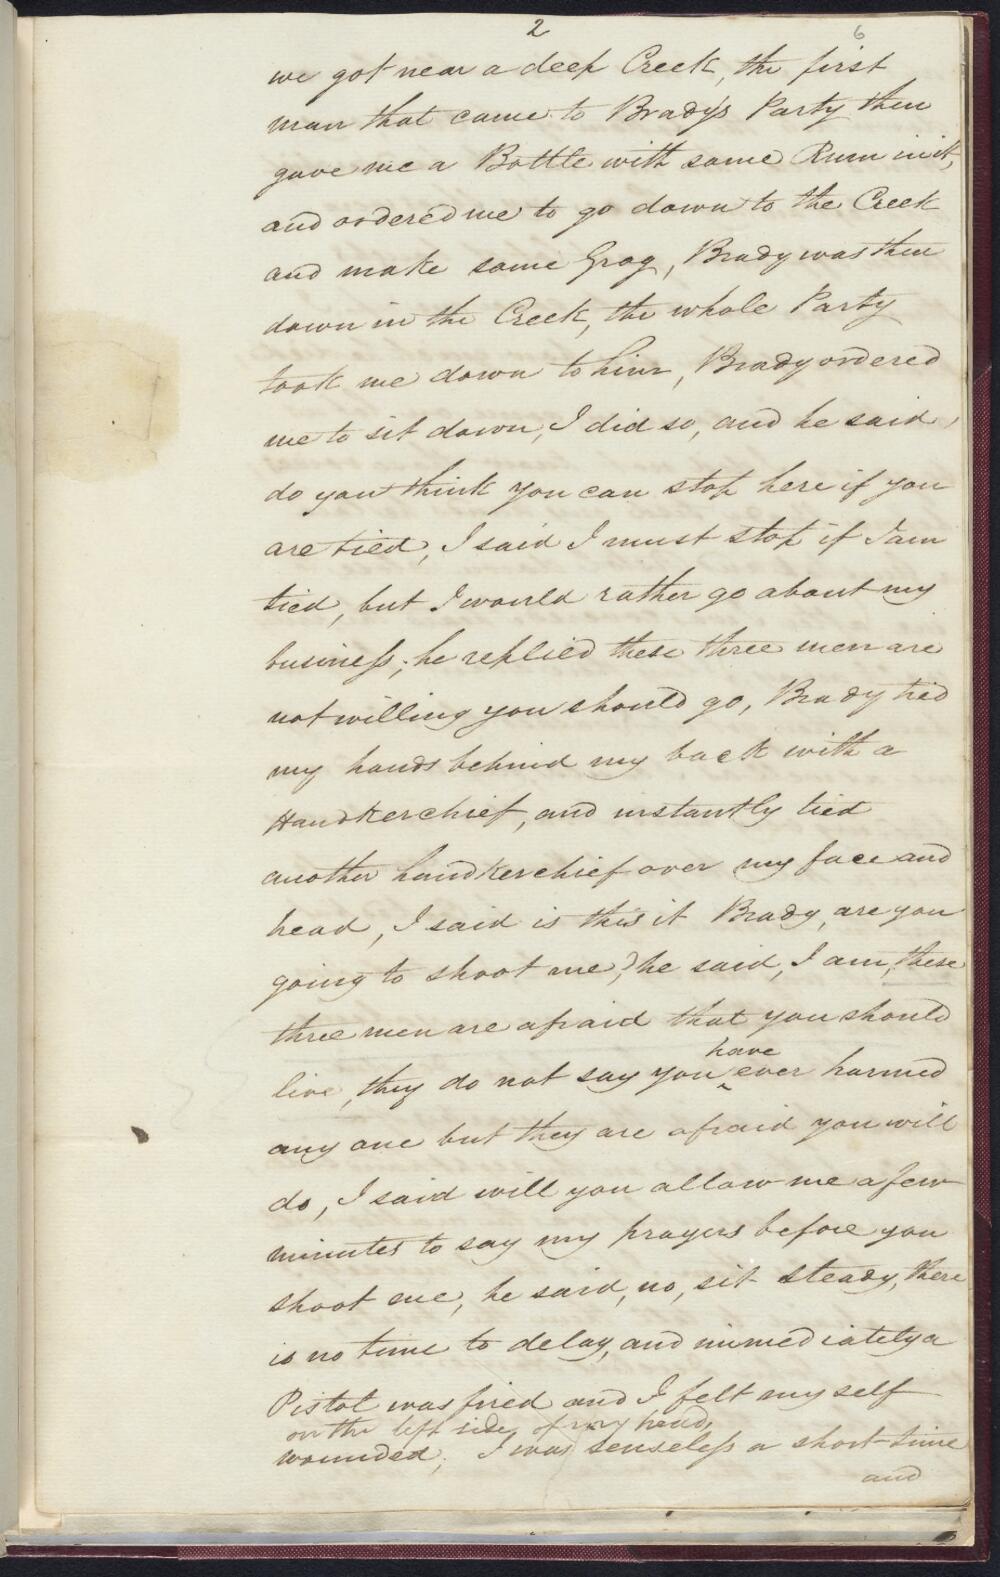 2
6
we got near a deep Creek, the first
man that came to Brady's Party then
gave me a Bottle with some Rum in it,
and ordered me to go down to the Creek
and make some Grog, Brady was then
down in the Creek, the whole Party
took me down to him, Brady ordered
me to sit down, I did so, and he said,
do you think you can stop here if you
are tied, I said I must stop if I am
tied, but I would rather go about my
business; he replied these three men are
not willing you should go, Brady tied
my hands behind my back with a
Handkerchief, and instantly tied
another handkerchief over my face and
head, I said is this it Brady, are you
going to shoot me? he said, I am, these
three men are afraid that you should
live, they do not say you have ever harmed
any one but they are afraid you will
do, I said will you allow me a few
minutes to say my prayers before you
shoot me, he said, no, sit steady, there
is no time to delay, and immediately a
Pistol was fired and I felt myself
on the left side of my head,
wounded; I was senseless a short time
and